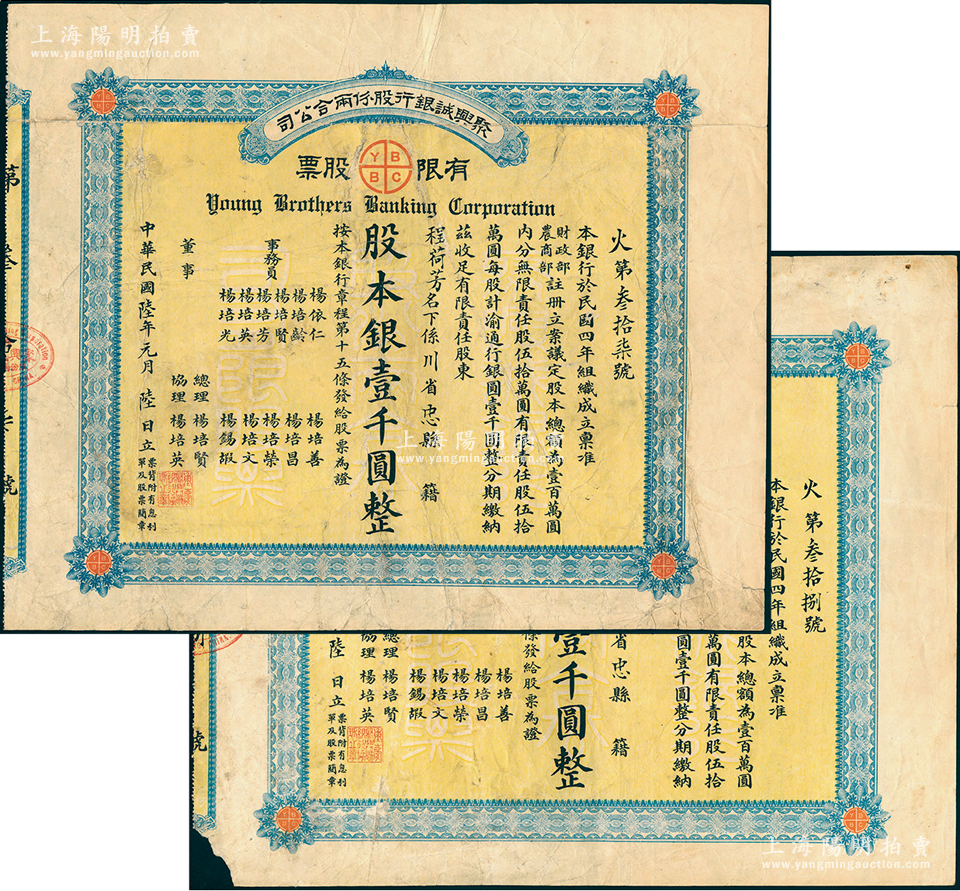 上海陽明拍賣
www.yangmingauction.com
聚興誠銀行股份兩合公司
有限股票
Y B
B C
Young Brothers Banking Corporation
火第叄拾柒號
本銀行於民國四年組織成立稟准
財政部農商部註册立案議定股本總額為壹百萬圓
內分無限責任股伍拾萬圓有限責任股伍拾
萬圓每股計渝通行銀圓壹千圓整分期繳納
茲收足有限責任股東
程荷芳名下係川省忠縣籍
股本銀壹千圓整
按本銀行章程第十五條發給股票為證
事務員
楊依仁
楊培齡
楊培賢
楊培芳
楊培英
楊培光
楊培善
楊培昌
楊培榮
楊培文
楊錫嘏
董事
總理 楊培賢
協理 楊培英
中華民國陸年元月陸日立
票背附有息利
單及股票簡章
第叄拾柒號
上海陽明拍賣
www.yangmingauction.com
火第叄拾捌號
本銀行於民國四年組織成立稟准
股本總額為壹百萬圓
萬圓有限責任股伍拾
圓壹千圓整分期繳納
省忠縣籍
壹千圓整
條發給股票為證
楊培善
楊培昌
楊培榮
楊培文
楊錫嘏
總理 楊培賢
協理 楊培英
陸日立
票背附有息利
單及股票簡章
號
上海陽明拍賣
www.yangmingauction.com